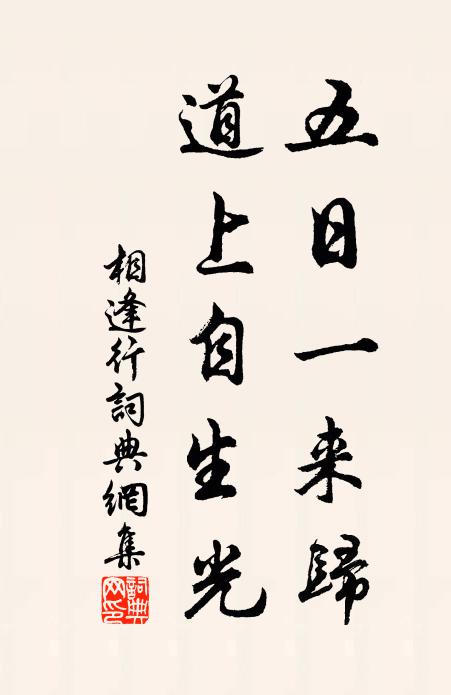 五日一来歸
道上自生光
相逢行詞典網集
詞典网印